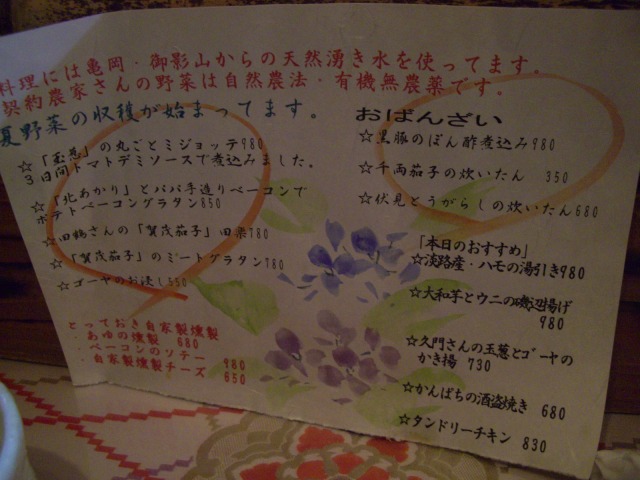 料理には亀岡・御影山からの天然湧き水を使ってます。
契約農家さんの野菜は自然農法・有機無農薬です。
夏野菜の収穫が始まってます。
☆「玉葱」の丸ごとミジョッテ980
3日間トマトデミソースで煮込みました。
☆「北あかり」とパパ手造りベーコンで
ポテトベーコングラタン850
☆田鶴さんの「賀茂茄子」田楽780
☆「賀茂茄子」のミートグラタン780
☆ゴーヤのお浸し550
とっておき自家製燻製
・あゆの燻製 680
・ベーコンのソテー 980
・自家製燻製チーズ 650
おばんざい
☆黒豚のぽん酢煮込み980
☆千両茄子の炊いたん 350
☆伏見とうがらしの炊いたん680
「本日のおすすめ」
☆淡路産・ハモの湯引き980
☆大和芋とウニの磯辺揚げ
980
☆久門さんの玉葱とゴーヤの
かき揚 730
☆かんぱちの酒盗焼き 680
☆タンドリーチキン 830